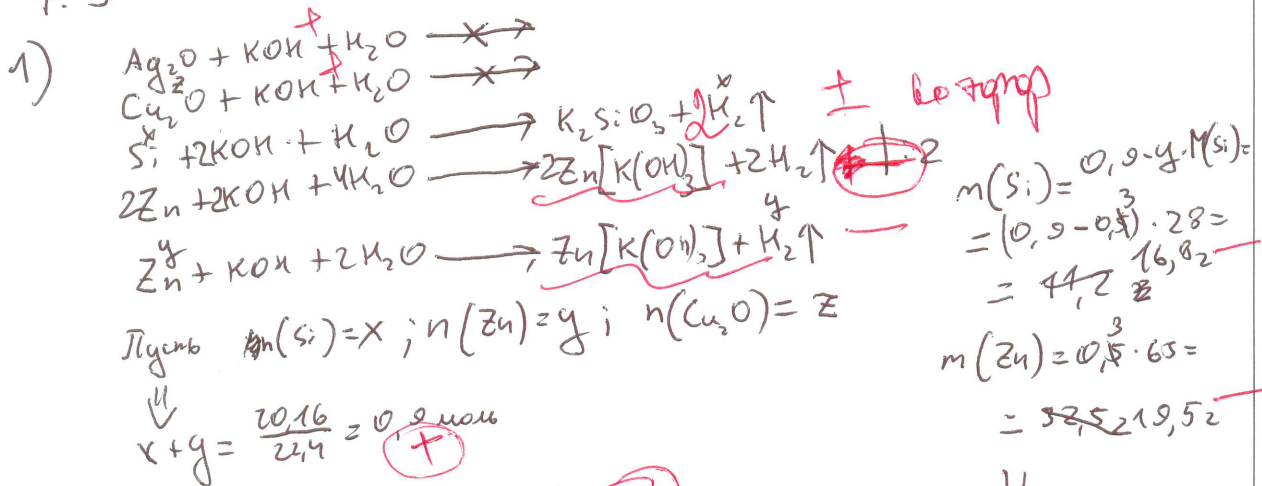 1)
Ag₂O + KOH + H₂O ⟶
Cu₂O + KOH + H₂O ⟶
Si + 2KOH + H₂O ⟶ K₂SiO₃ + 2H₂↑
2Zn + 2KOH + 4H₂O ⟶ 2Zn[K(OH)₃] + 2H₂↑ | · 2
Zn + KOH + 2H₂O ⟶ Zn[K(OH)₃] + H₂↑
Пусть n(Si) = x ; n(Zn) = y ; n(Cu₂O) = z
⇓
x + y = 20,16 / 22,4 = 0,9 моль
+
m(Si) = 0,9 - y · M(Si) =
= (0,9 - 0,3) · 28 =
= 16,8 г
m(Zn) = 0,3 · 65 =
= 19,5 г